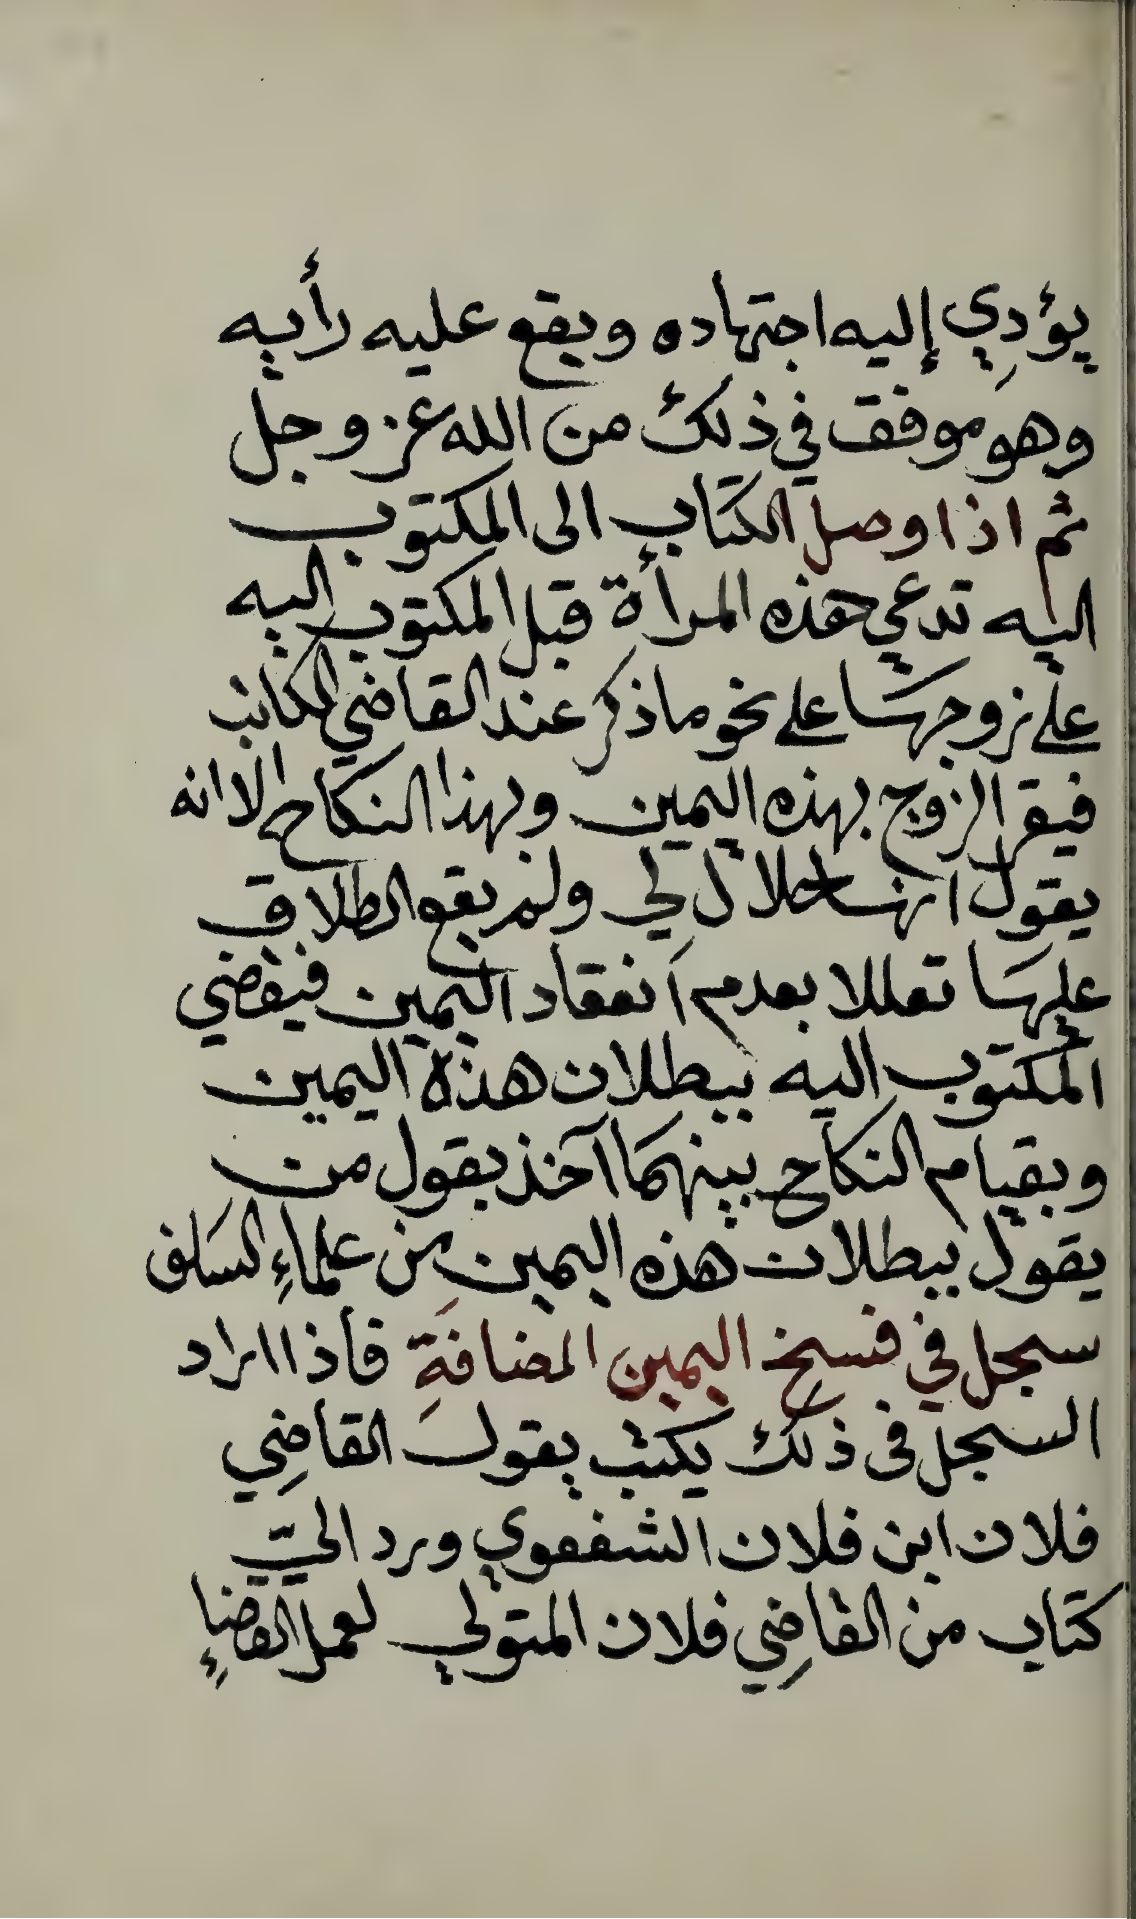 يؤدي إليه اجتهاده ويقع عليه رأيه
وهو موفق في ذلك من الله عز وجل
ثم اذا وصل الكتاب الى المكتوب
اليه تدعي هذه المرأة قبل المكتوب اليه
على زوجها على نحو ما ذكر عند القاضي الكاتب
فيقر الزوج بهذه اليمين وبهذا النكاح الا انه
يقول انها حلال لي ولم يقع الطلاق
عليها تعللا بعدم انعقاد اليمين فيقضي
المكتوب اليه ببطلان هذه اليمين
وبقيام النكاح بينهما آخذ بقول من
يقول ببطلان هذه اليمين من علماءِ السلف
سجل في فسخ اليمين المضافةِ فاذا اراد
السجل فى ذلك يكتب يقول القاضِي
فلان ابن فلان الشفعوي ورد اليّ
كتاب من القاضِي فلان المتولي لعمل القضاءِ